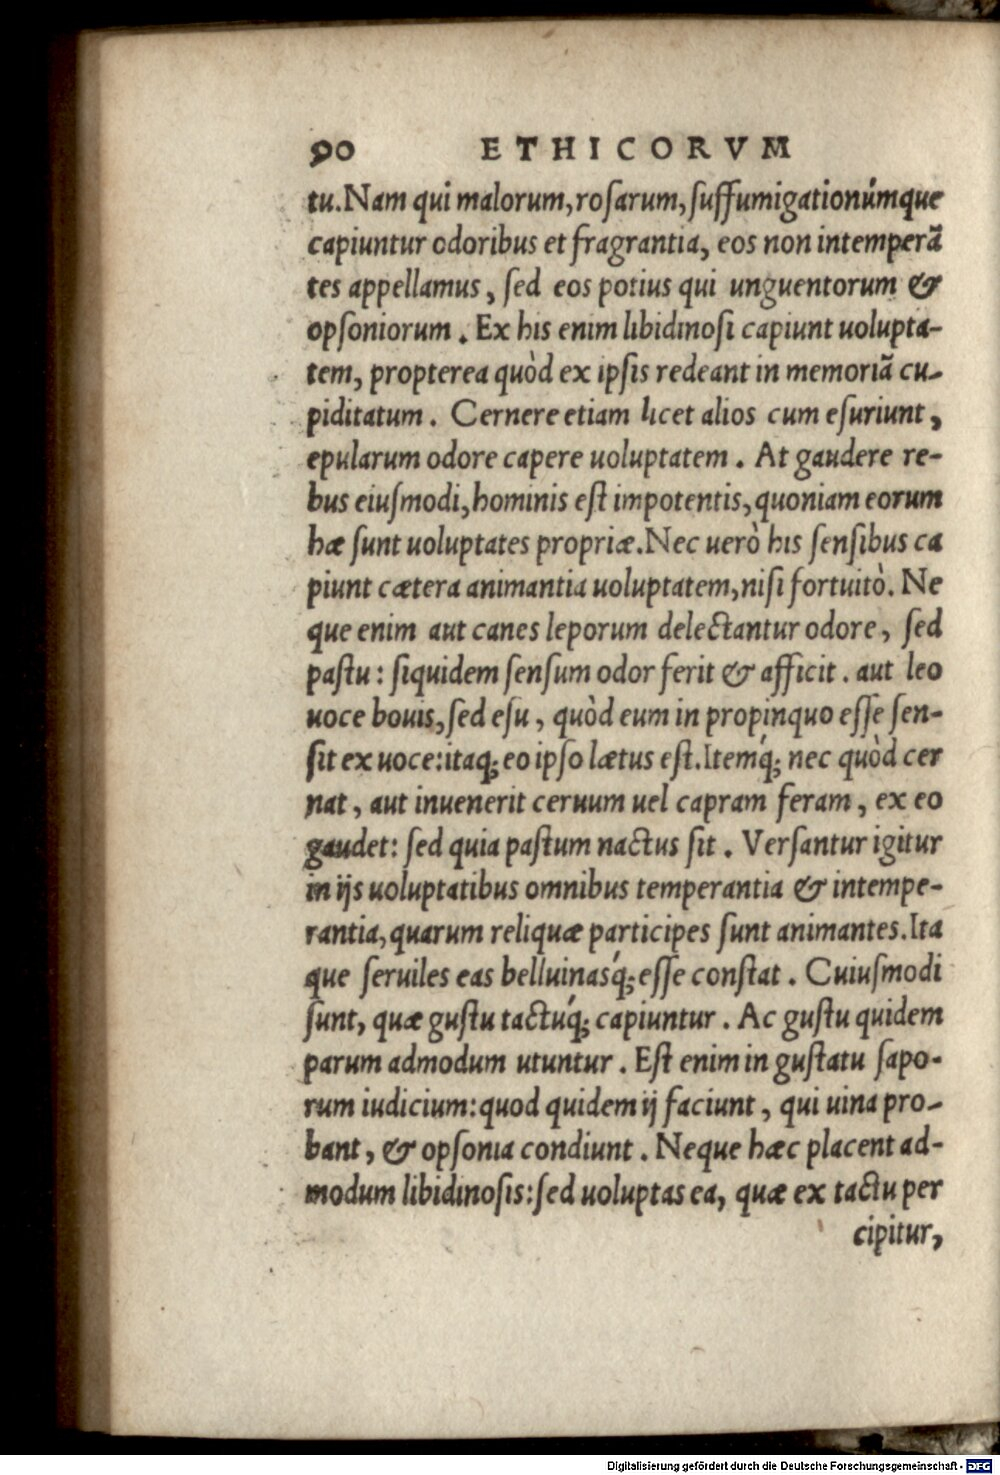 90 ETHICORVM
tu. Nam qui malorum, rosarum, suffumigationúmque
capiuntur odoribus et fragrantia, eos non intemperã
tes appellamus, sed eos potius qui unguentorum &
opsoniorum. Ex his enim libidinosi capiunt uolupta-
tem, propterea quòd ex ipsis redeant in memoriã cu-
piditatum. Cernere etiam licet alios cum esuriunt,
epularum odore capere uoluptatem. At gaudere re-
bus eiusmodi, hominis est impotentis, quoniam eorum
hæ sunt uoluptates propriæ. Nec uerò his sensibus ca
piunt cætera animantia uoluptatem, nisi fortuitò. Ne
que enim aut canes leporum delectantur odore, sed
pastu: siquidem sensum odor ferit & afficit. aut leo
uoce bouis, sed esu, quòd eum in propinquo esse sen-
sit ex uoce: itaq; eo ipso lætus est. Itemq́; nec quòd cer
nat, aut inuenerit ceruum uel capram feram, ex eo
gaudet: sed quia pastum nactus sit. Versantur igitur
in ijs uoluptatibus omnibus temperantia & intempe-
rantia, quarum reliquæ participes sunt animantes. Ita
que seruiles eas belluinasq́; esse constat. Cuiusmodi
sunt, quæ gustu tactúq; capiuntur. Ac gustu quidem
parum admodum utuntur. Est enim in gustatu sapo-
rum iudicium: quod quidem ij faciunt, qui uina pro-
bant, & opsonia condiunt. Neque hæc placent ad-
modum libidinosis: sed uoluptas ea, quæ ex tactu per
cipitur,
Digitalisierung gefördert durch die Deutsche Forschungsgemeinschaft - DFG